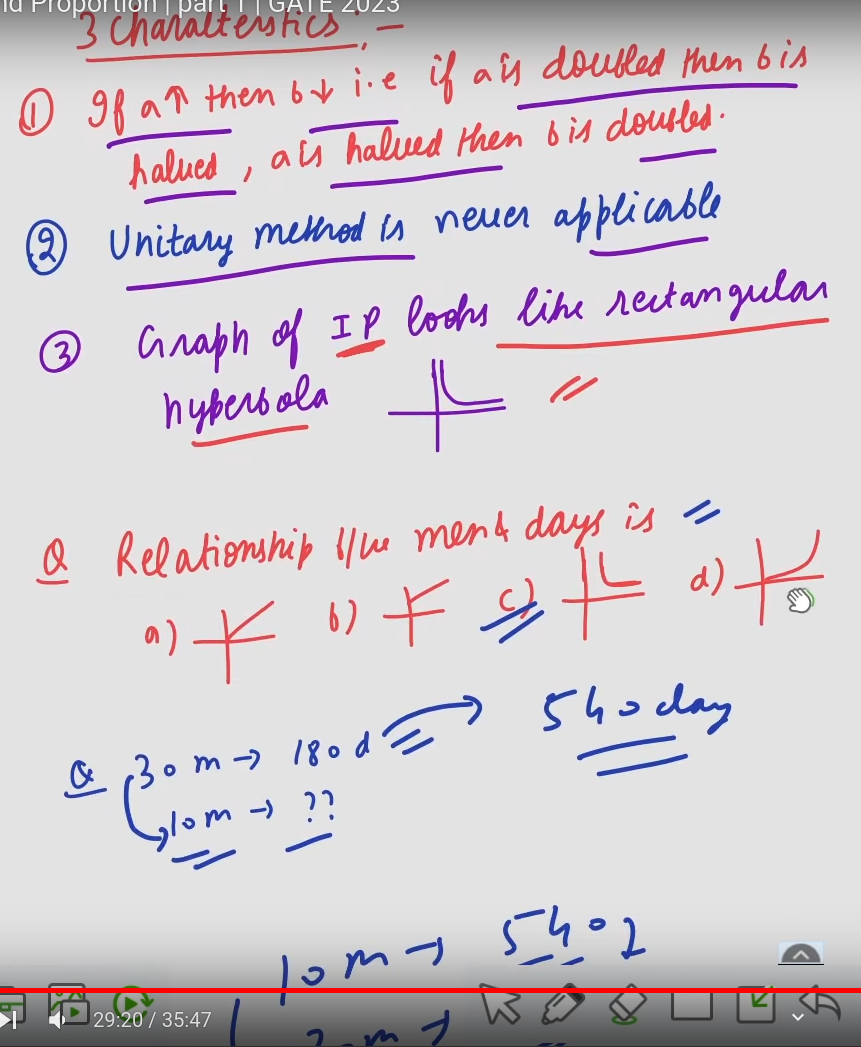 nd Proportion | part 1 | GATE 2023
3 Charalterstics :-
① If a↑ then b↓ i.e if a is doubled then b is
halved , a is halved then b is doubled.
② Unitary method is never applicable
③ Graph of IP looks like rectangular
hyperbola
Q Relationship b/w men & days is
a) b) c) d)
Q 30 m → 180 d 540 day
10 m → ??
10 m → 540
29:20 / 35:47